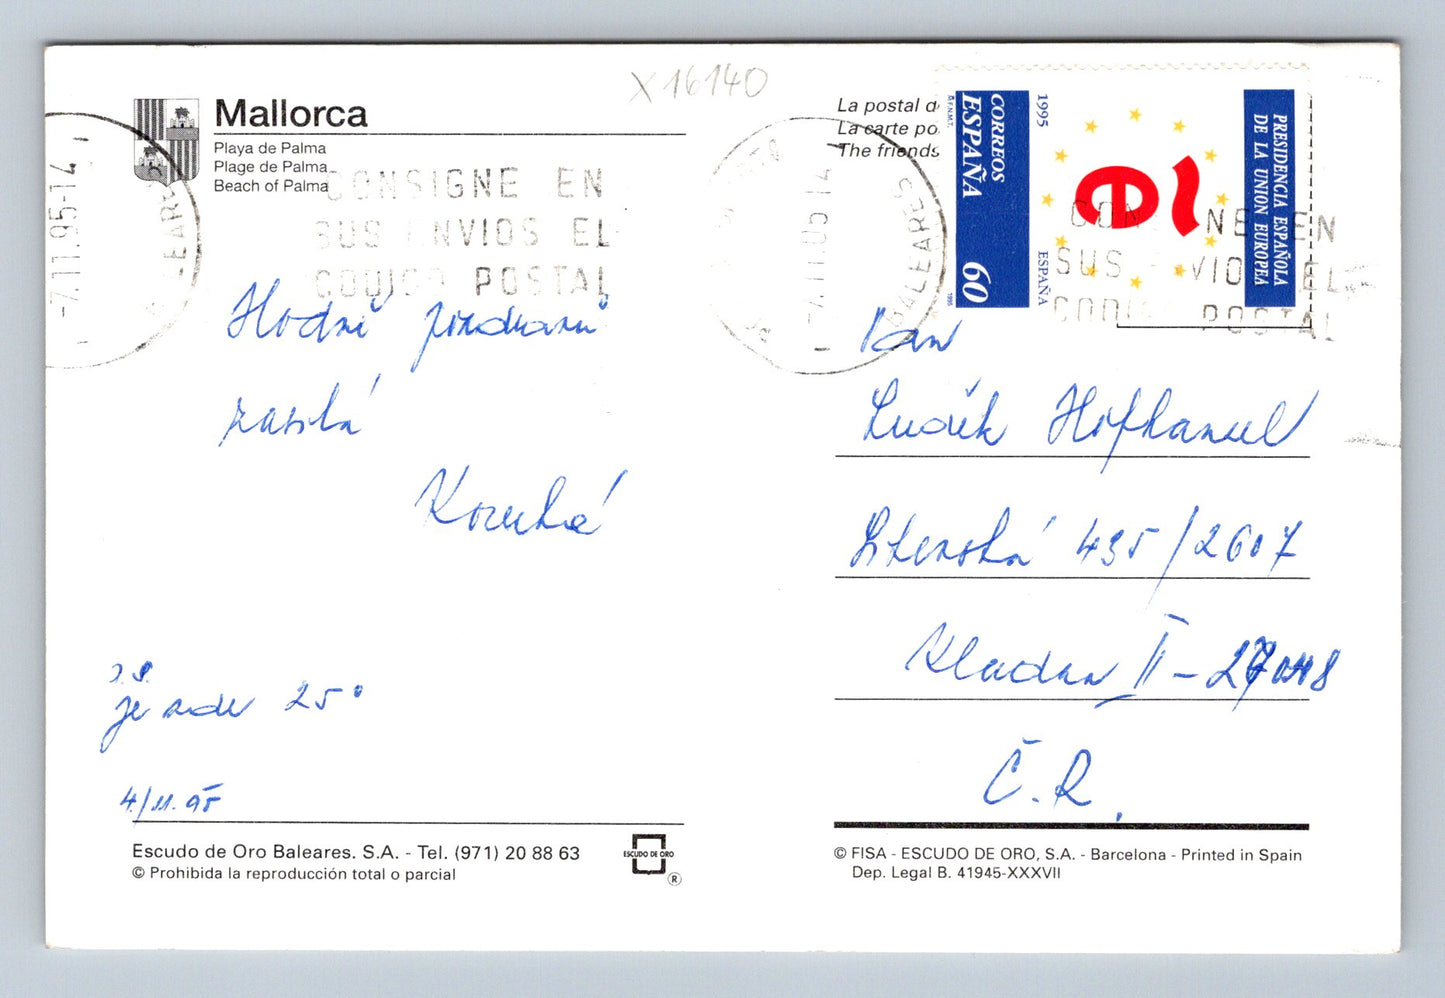 X 16140
Mallorca
Playa de Palma
Plage de Palma
Beach of Palma
-7.11.95-14
BALEARES
CONSIGNE EN
SUS ENVIOS EL
CODIGO POSTAL
Hodně pozdravů
zasílá
P.S.
je zde 25°
4./11. 95
Escudo de Oro Baleares. S.A. - Tel. (971) 20 88 63
© Prohibida la reproducción total o parcial
ESCUDO DE ORO
®
La postal d
La carte po
The friends
-7.11.95-14
BALEARES
CORREOS
ESPAÑA
F.N.M.T.
60
1995
1995
ESPAÑA
ẽ
PRESIDENCIA ESPAÑOLA
DE LA UNION EUROPEA
CONSIGNE EN
SUS ENVIOS EL
CODIGO POSTAL
Pan
Luděk Hofhansel
435/2607
Kladno II -
Č.R.
© FISA - ESCUDO DE ORO, S.A. - Barcelona - Printed in Spain
Dep. Legal B. 41945-XXXVII